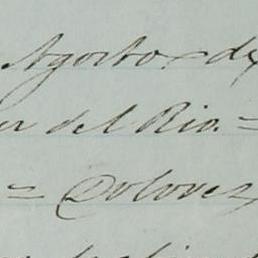 Agosto de
er del Rio. =
= Dolores